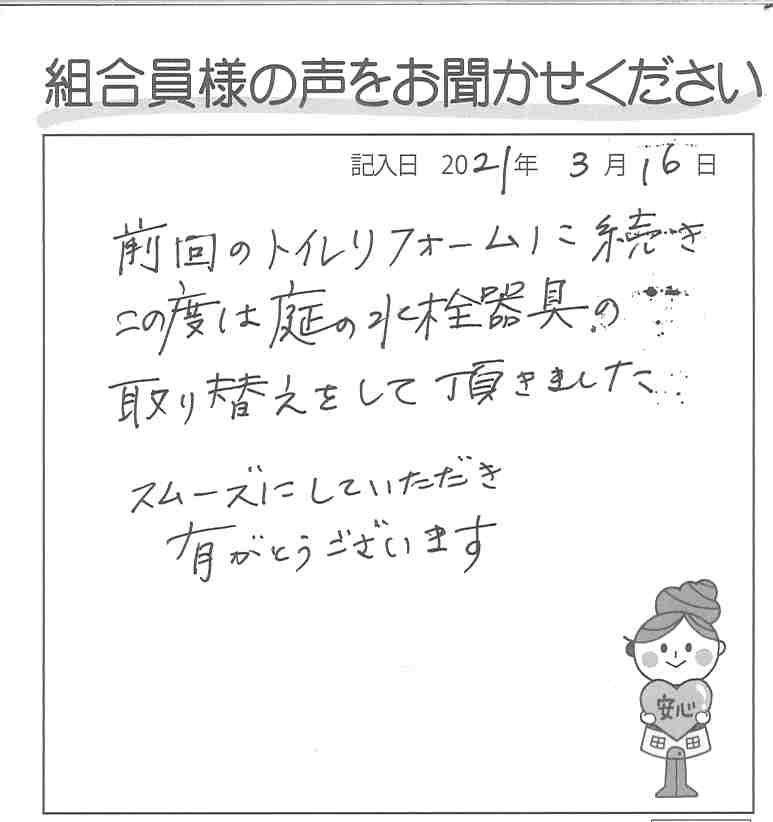 組合員様の声をお聞かせください
記入日 2021年 3月16日
前回のトイレリフォームに続き
この度は庭の水栓器具の
取り替えをして頂きました
スムーズにしていただき
有がとうございます
安心